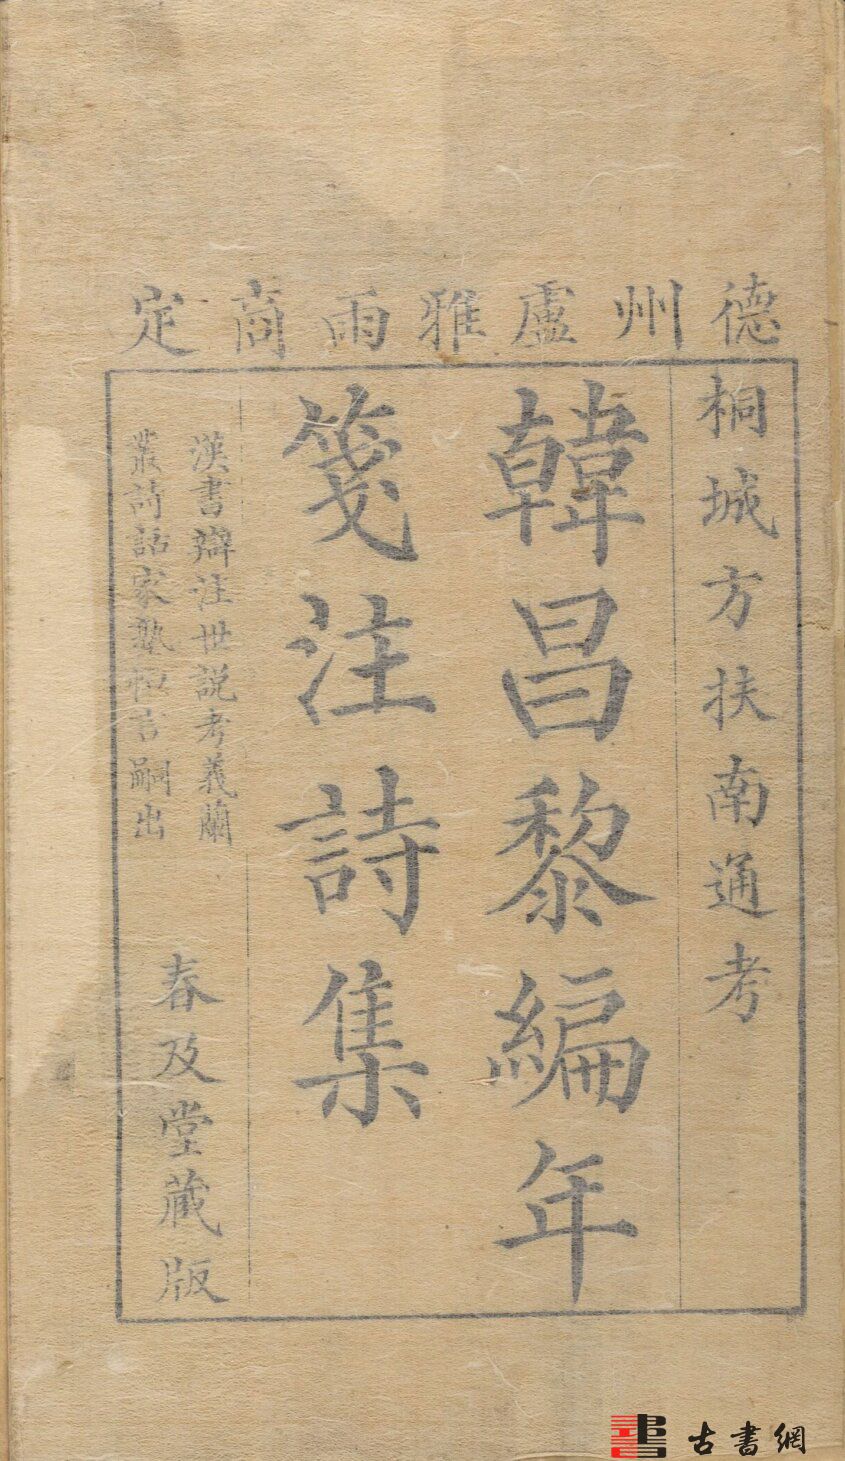 德州盧雅雨商定
桐城方扶南通考
韓昌黎編年
箋注詩集
漢書辯注世説考義蘭
叢詩話家塾恒言嗣出
春及堂藏版
古書網